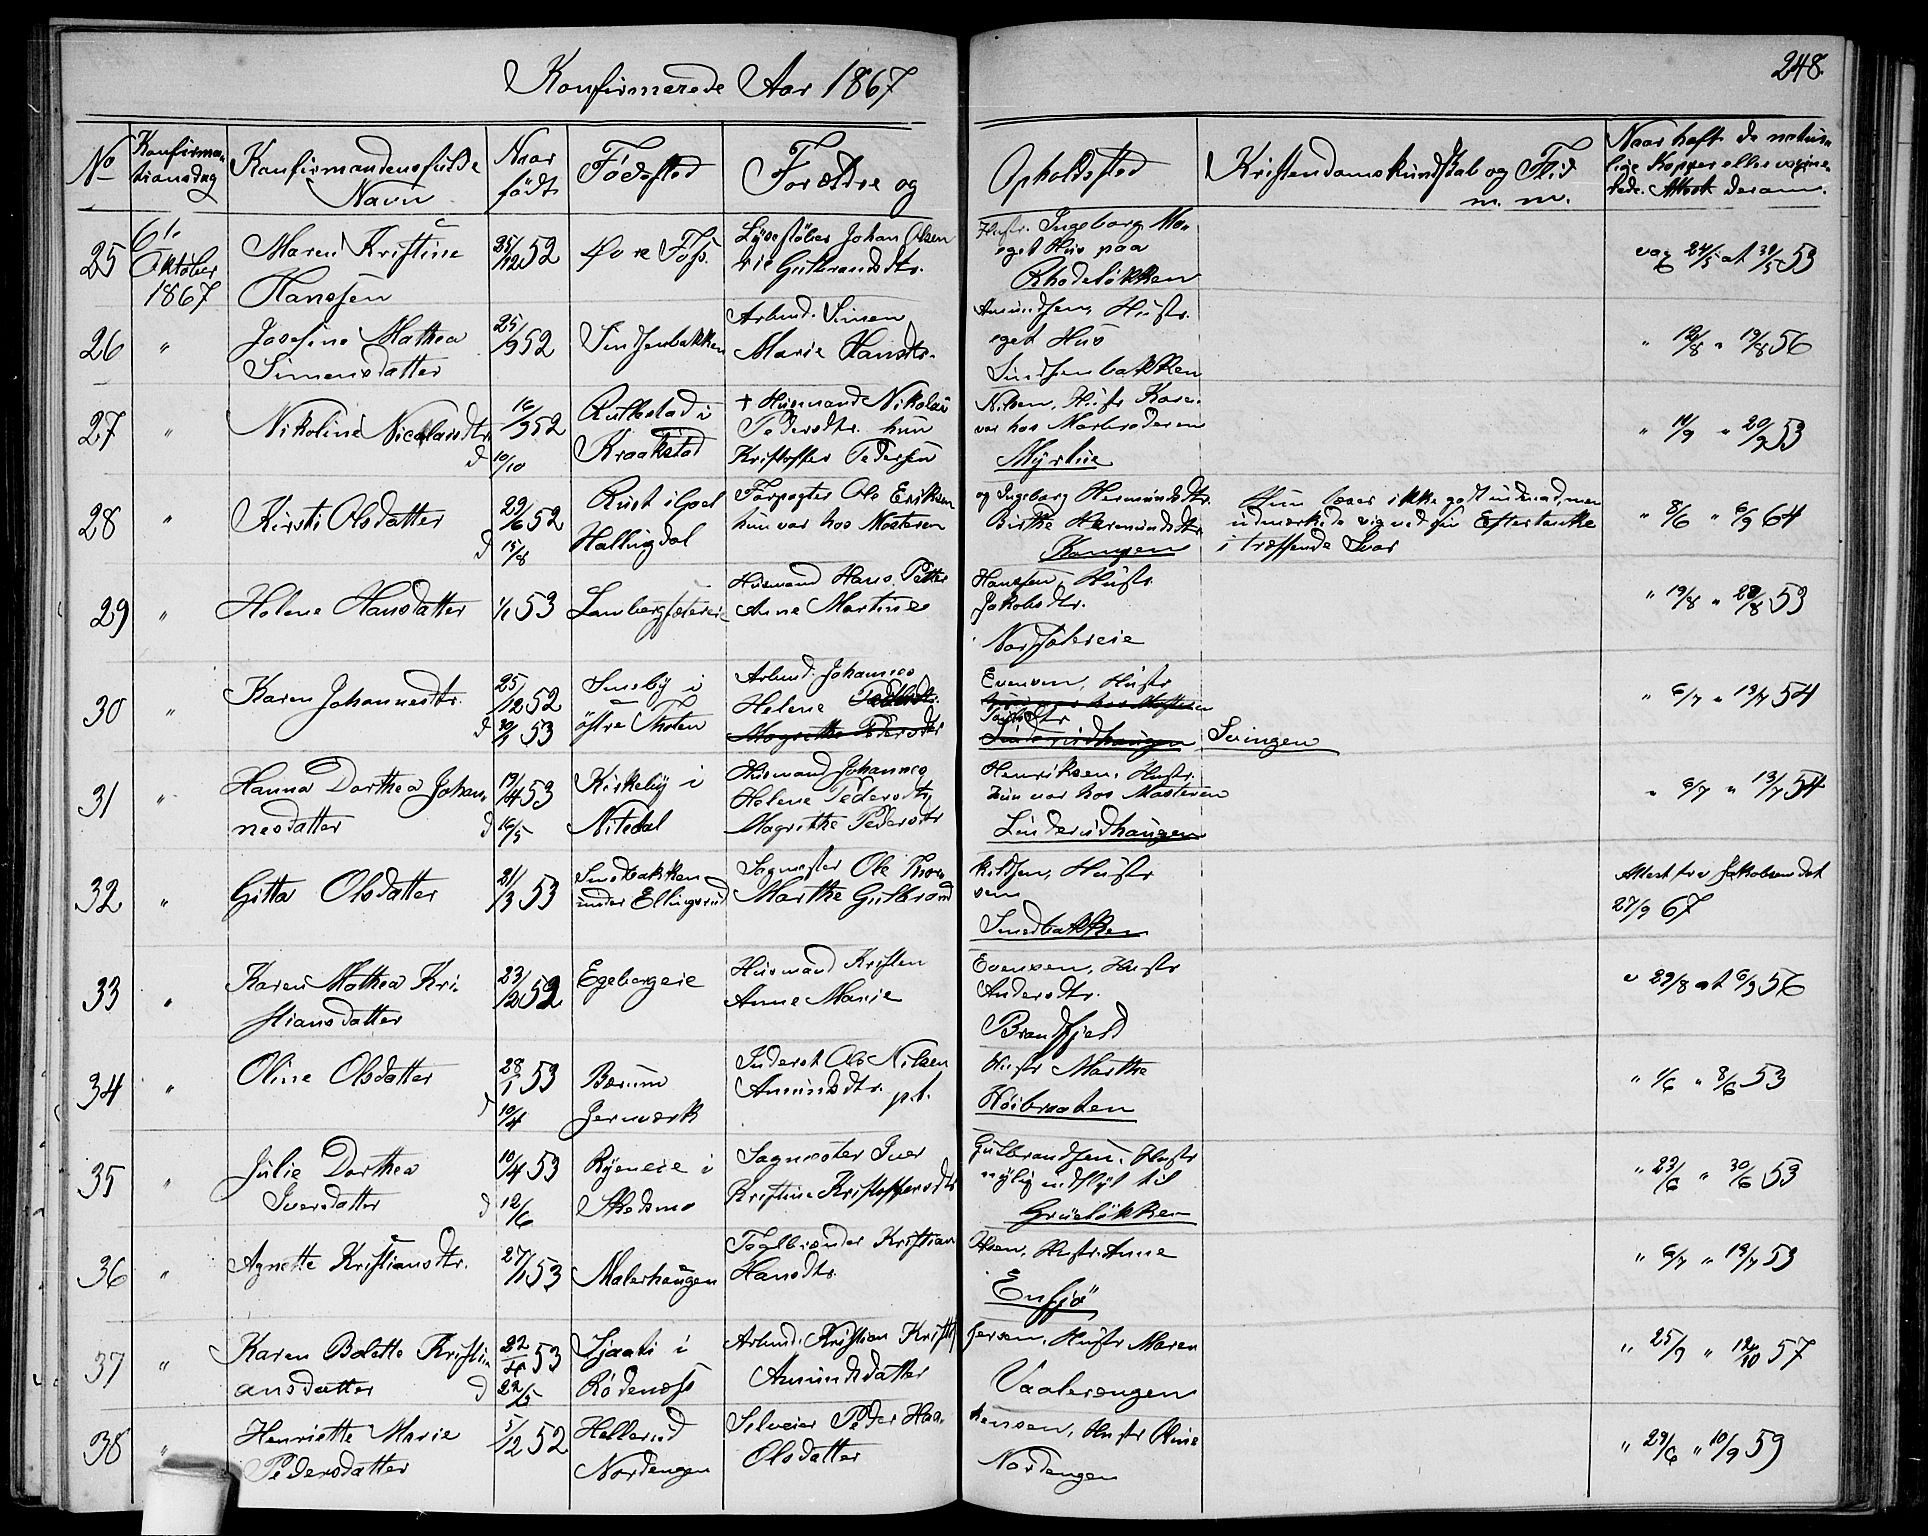 Konfirmerede Aar 1867
248.
No
Konfirma-
tionsdag
Konfirmandens fulde
Navn
Naar
født
Fødested
Forældre og
Opholdssted
Kristendomskundskab og Flid
m. m.
Naar hafte de natur-
lige Kopper eller vaccine-
rede. Attest derom.
25 6te Oktober 1867
Maren Kristine
Hanssen
25/12 52
Øvre Foss.
Lysestøber Johan Olsen
rie Gulbrandsdtr.
Hustr. Ingeborg Ma-
eget Hus paa
Rhodeløkken
vac 24/5 at 31/5 53
26 "
Josefine Mathea
Simensdatter
25/9 52
Sinsenbakken
Arbmd. Simen
Marie Hansdtr.
Amundsen, Hustr.
eget Hus
Sinsenbakken
" 12/8 " 19/8 56
27 "
Nikoline Nicolaisdtr.
16/9 52
d 10/10
Kraakstad
+ Husmand Nikolai
Pedersdtr. hun
Kristoffer Pedersen
Nilsen, Hustr. Karen
var hos Morbroderen
Myrlue
" 14/9 " 20/9 53
28 "
Kirsti Olsdatter
29/6 52
d 15/8
Rust i Goel
Hallingdal
Forpagter Ole Eriksen
hun var hos Mosteren
og Ingeborg Hermundsdtr.
Birthe Hermundsdtr.
Kampen
Hun læser ikke godt indenad men
udmærkede sig ved fin Eftertanke
i træffende Svar
" 8/6 " 6/9 64
29 "
Helene Hansdatter
1/1 53
Lambergseterei
Husmand Hans Petter
Anne Martine
Hanssen, Hustr.
Jakobsdtr.
Nordsetereie
" 19/8 " 28/8 53
30 "
Karen Johannesdtr.
25/12 52
d 30/1 53
Sneby i
østre Thoten
Arbmd. Johannes
Helene
Magrethe Pedersdtr
Evensen, Hustr
hun var hos Mosteren
Linderudhaugen
Svingen
" 6/7 " 13/7 54
31 "
Hanna Dorthea Johan-
nesdatter
19/4 53
d 16/5
Kirkeby i
Nitedal
Husmand Johannes
Helene Pedersdtr
Magrethe Pedersdtr
Henriksen, Hustr.
hun var hos Mosteren
Linderudhaugen
" 6/7 " 13/7 54
32 "
Gitta Olsdatter
21/3 53
Smedbakken
under Ellingsrud
Sagmester Ole Thor-
Marthe Gulbrand
kildsen, Hustr
sen
Smedbakken
Attest fra Jakobsen dat
27/9 67
33 "
Karen Mathea Kri-
stiansdatter
23/12 52
Egebergeie
Husmand Kristen
Anne Marie
Evensen, Hustr
Andersdtr.
Brandfjeld
v 29/8 at 6/9 56
34 "
Oline Olsdatter
28/1 53
d 10/4
Bærum
Jernværk
Inderst Ole Nilsen
Amundsdtr. p.t.
Hustr Marthe
Høibraaten
" 1/6 " 8/6 53
35 "
Julie Dorthea
Iversdatter
10/4 53
d 12/6
Ryeneie i
Skedsmo
Sagmester Iver
Kristine Kristoffersdtr
Gulbrandsen, Hustr
nylig indflyt til
Grüeløkken
" 23/6 " 30/6 53
36 "
Agnette Kristiansdtr.
27/1 53
Malerhaugen
Teglbrænder Kristian
Hansdtr.
Olsen, Hustr. Anne
Ensjø
" 6/7 " 13/7 53
37 "
Karen Bolette Kristi-
ansdatter
22/4 53
d 22/5
Rødenæss
Arbmd. Kristian Krist
Amundsdatter
fersen, Hustr Maren
Vaalerengen
" 25/9 " 12/10 57
38 "
Henriette Marie
Pedersdatter
5/12 52
Hellerud
Nordengen
Selveier Peder Han-
Olsdatter
Hustr Oline
Nordengen
" 29/6 " 10/9 59